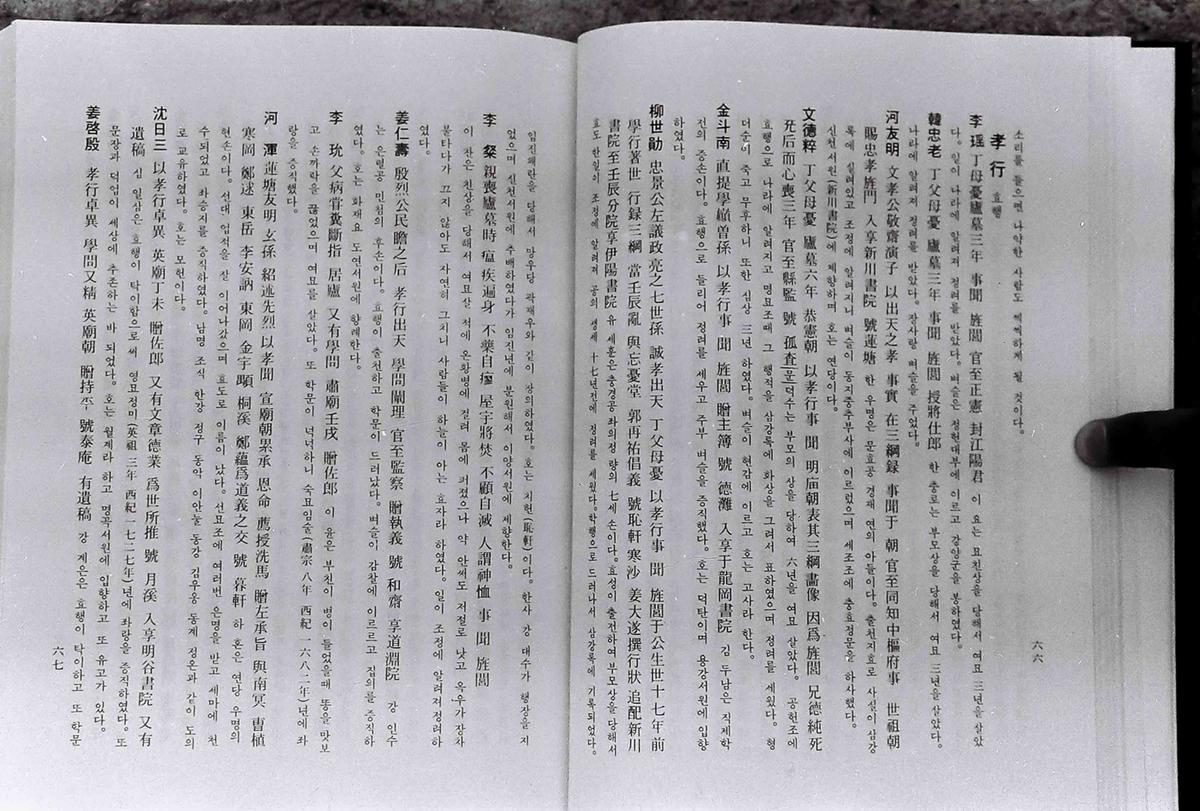 소리를 들으면 나약한 사람도 씩씩하게 될 것이다.
孝行 효행
李瑶 丁母憂廬墓三年 事聞 旌閭 官至正憲 封江陽君 이 요는 모친상을 당해서 여묘 三년을 살았
다。 일이 나라에 알려져 정려를 받았다。 벼슬은 정헌대부에 이르고 강양군을 봉하였다。
韓忠老 丁父母憂 廬墓三年 事聞 旌閭 授將仕郎 한 충로는 부모상을 당해서 여묘 三년을 살았다。
나라에 알려져 정려를 받았다。 장사랑 벼슬을 주었다。
河友明 文孝公敬齋演子 以出天之孝 事實 在三綱録 事聞于 朝 官至同知中樞府事 世祖朝
賜忠孝旌門 入享新川書院 號蓮塘 한 우명은 문효공 경재 연의 아들이다。 출천지효로 사실이 삼강
록에 실려있고 조정에 알려지니 벼슬이 동지중추부사에 이르렀으며 세조조에 충효정문을 하사했다。
신천서원(新川書院)에 제향하며 호는 연당이다。
文德粹 丁父母憂 廬墓六年 恭憲朝 以孝行事 聞 明庙朝表其三綱畵像 因爲旌閭 兄德純死
死后而心喪三年 官至縣監 號 孤査 문덕수는 부모의 상을 당하여 六년을 여묘 살았다。 공헌조에
효행으로 나라에 알려지고 명묘조때 그 행적을 삼강록에 화상을 그려서 표하였으며 정려를 세웠다。 형
더순이 죽고 무후하니 또한 심상 三년 하였다。 벼슬이 현감에 이르고 호는 고사라 한다。
金斗南 直提學𫖮曽孫 以孝行事 聞 旌閭 贈主簿 號 德灘 入享于龍岡書院 김 두남은 직제학
전의 증손이다。 효행으로 들리어 정려를 세우고 주부 벼슬을 증직했다。 호는 덕탄이며 용강서원에 입향
하였다。
柳世勛 忠景公左議政 亮之七世孫 誠孝出天 丁父母憂 以孝行事 聞 旌閭于公生世十七年前
學行著世 行録三綱 當壬辰亂 與忘憂堂 郭再祐倡義 號恥軒寒沙 姜大遂撰行狀 追配新川
書院至壬辰分院享伊陽書院 유 세훈은 충경공 좌의정 량의 七세 손이다。 효성이 출천하여 부모상을 당해서
효도 한일이 조정에 알려져 공의 생세 十七년전에 정려를 세웠다。 학행으로 드러나서 삼강록에 기록되었다。
六六
임진왜란을 당해서 망우당 곽재우와 같이 창의하였다。 호는 치헌(恥軒)이다。 한사 강 대수가 행장을 지
었으며 신천서원에 추배하였다가 임진년에 분원해서 이양서원에 제향한다。
李 粲 親喪廬墓時 瘟疾遍身 不藥自瘳 屋宇將焚 不顧自滅 人謂神恤 事 聞 旌閭
이 찬은 친상을 당해서 여묘살 적에 온황병에 걸려 몸에 퍼졌으나 약 안써도 저절로 낫고 옥우가 장차
불타다가 끄지 않아도 자연히 그치니 사람들이 하늘이 아는 효자라 하였다。 일이 조정에 알려져정려하
였다。
姜仁壽 殷烈公民瞻之后 孝行出天 學問闡理 官至監察 贈執義 號 和齋 享道淵院 강 인수
는 은렬공 민첨의 후손이다。 효행이 출천하고 학문이 드러났다。 벼슬이 감찰에 이르르고 집의를 증직하
였다。 호는 화재요 도연서원에 향례한다。
李 玧 父病嘗糞斷指 居廬 又有學問 肅廟壬戌 贈佐郎 이 윤은 부친이 병이 들었을때 똥을 맛보
고 손까락을 끊었으며 여묘를 살았다。 또 학문이 넉넉하니 숙묘임술(肅宗八年 西紀 一六八二年)년에 좌
랑을 증직했다。
河 渾 蓮塘友明 玄孫 紹述先烈 以孝聞 宣廟朝累承 恩命 薦授洗馬 贈左承旨 與南冥 曺植
寒岡 鄭逑 東岳 李安訥 東岡 金宇顒 桐溪 鄭蘊爲道義之交 號 暮軒 하 혼은 연당 우명의
현손이다。 선대 업적을 잘 이어나갔으며 효도로 이름이 났다。 선묘조에 여러번 은명을 받고 세마에 천
수되었고 좌승지를 증직하였다。 남명 조식 한강 정구 동악 이안눌 동강 김우옹 동계 정온과 같이 도의
로 교유하였다。 호는 모헌이다。
沈日三 以孝行卓異 英廟丁未 贈佐郎 又有文章德業 爲世所推 號 月溪 入享明谷書院 又有
遺稿 심 일삼은 효행이 탁이함으로써 영묘정미(英祖 三年 西紀 一七二七年)년에 좌랑을 증직하였다。 또
문장과 덕업이 세상에 추존하는 바 되었다。 호는 월계라 하고 명곡서원에 입향하고 또 유고가 있다。
姜啓殷 孝行卓異 學問又精 英廟朝 贈持平 號泰庵 有遺稿 강 계은은 효행이 탁이하고 또 학문
六七